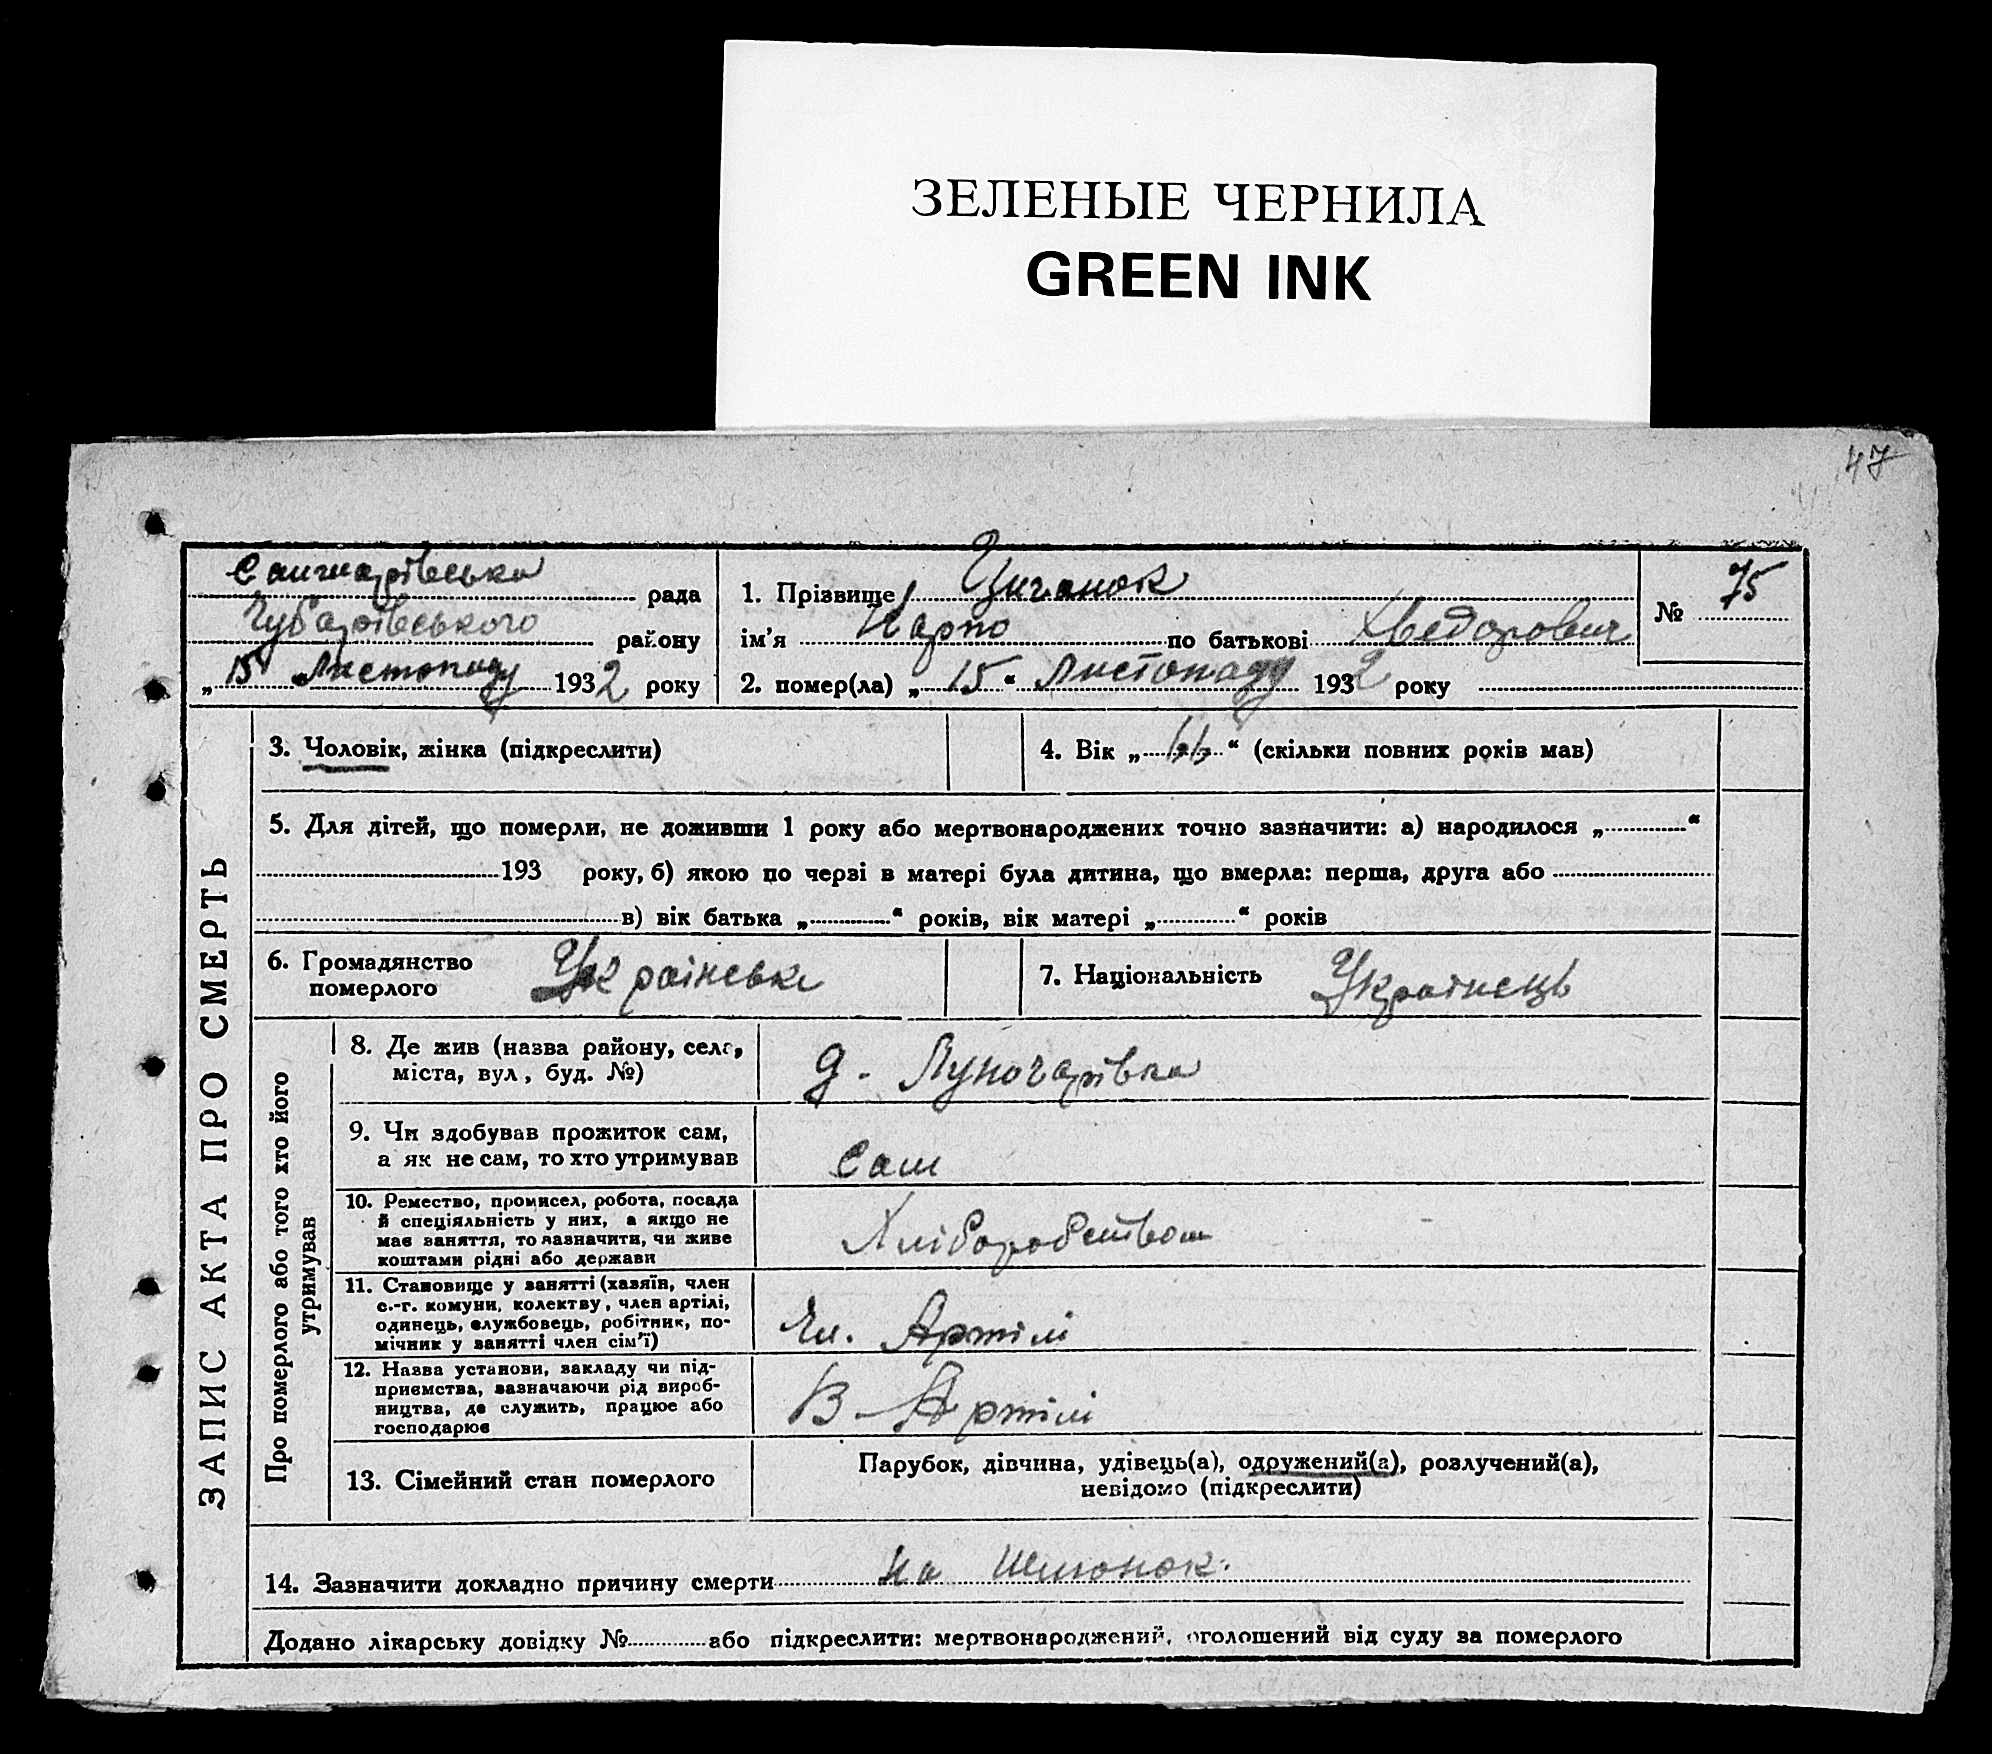 ЗЕЛЕНЫЕ ЧЕРНИЛА
GREEN INK
47
рада
Чубарівського району
„15“ Листопаду 1932 року
1. Прізвище Циганок
ім'я Карпо по батькові Хведорович
2. помер(ла) „15“ Листопаду 1932 року
№ 75
ЗАПИС АКТА ПРО СМЕРТЬ
3. Чоловік, жінка (підкреслити)
4. Вік „66“ (скільки повних років мав)
5. Для дітей, що померли, не доживши 1 року або мертвонароджених точно зазначити: а) народилося „ “
193 року, б) якою по черзі в матері була дитина, що вмерла: перша, друга або
в) вік батька „ “ років, вік матері „ “ років
6. Громадянство
померлого
Українське
7. Національність Українець
Про померлого або того хто його
утримував
8. Де жив (назва району, села,
міста, вул, буд. №)
д. Луначарівка
9. Чи здобував прожиток сам,
а як не сам, то хто утримував
Сам
10. Ремество, промисел, робота, посада
й спеціяльність у них, а якщо не
має заняття, то зазначити, чи живе
коштами рідні або держави
Хліборобством
11. Становище у занятті (хазяїн, член
с.-г. комуни, колектву, член артілі,
одинець, службовець, робітник, по-
мічник у занятті член сім'ї)
Чл. Артілі
12. Назва установи, закладу чи під-
приємства, зазначаючи рід вироб-
ництва, де служить, працює або
господарює
В Артілі
13. Сімейний стан померлого
Парубок, дівчина, удівець(а), одружений(а), розлучений(а),
невідомо (підкреслити)
14. Зазначити докладно причину смерти На Шлюнок.
Додано лікарську довідку № або підкреслити: мертвонароджений, оголошений від суду за померлого